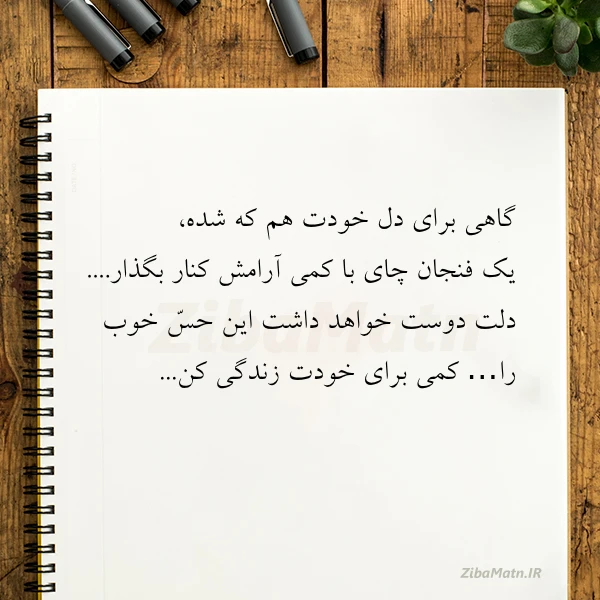 گاهی برای دل خودت هم که شده،
یک فنجان چای با کمی آرامش کنار بگذار....
دلت دوست خواهد داشت این حسّ خوب
را... کمی برای خودت زندگی کن...
ZibaMatn
ZibaMatn.IR